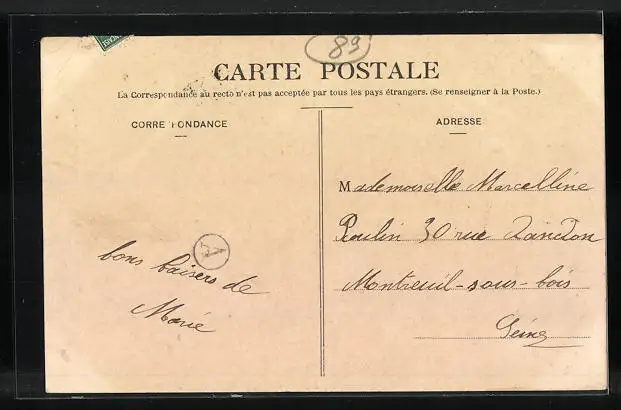 89
CARTE POSTALE
La Correspondance au recto n'est pas acceptée par tous les pays étrangers. (Se renseigner à la Poste.)
CORRE PONDANCE
ADRESSE
Mademoiselle Marcelline
Poulin 30 rue
Montreuil-sous-bois
Seine
A
bons baisers de
Marie